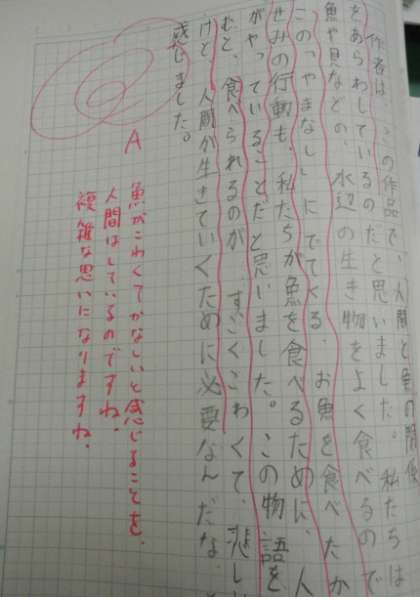 作者は、この作品で、人間と魚の関係
をあらわしているのだと思いました。私たちは
魚や貝などの、水辺の生き物をよく食べるので
この「やまなし」にでてくる、お魚を食べたか
せみの行動も、私たちが魚を食べるために、人
がやっていることだと思いました。この物語を
むと、食べられるのが、すごくこわくて、悲し
けど、人間が生きていくために必要なんだな、
感じました。
A
魚がこわくてかなしいと感じることを、
人間はしているのですね。
複雑な思いになりますね。